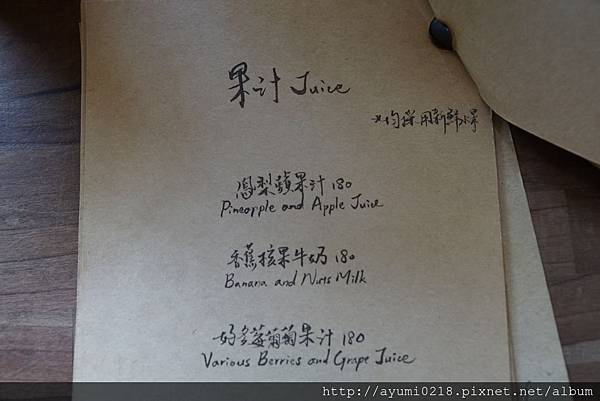 果汁 Juice
*均採用新鮮水果
鳳梨蘋果汁 180
Pineapple and Apple Juice
香蕉核果牛奶 180
Banana and Nuts Milk
好多莓葡萄果汁 180
Various Berries and Grape Juice
http://ayumi0218.pixnet.net/album